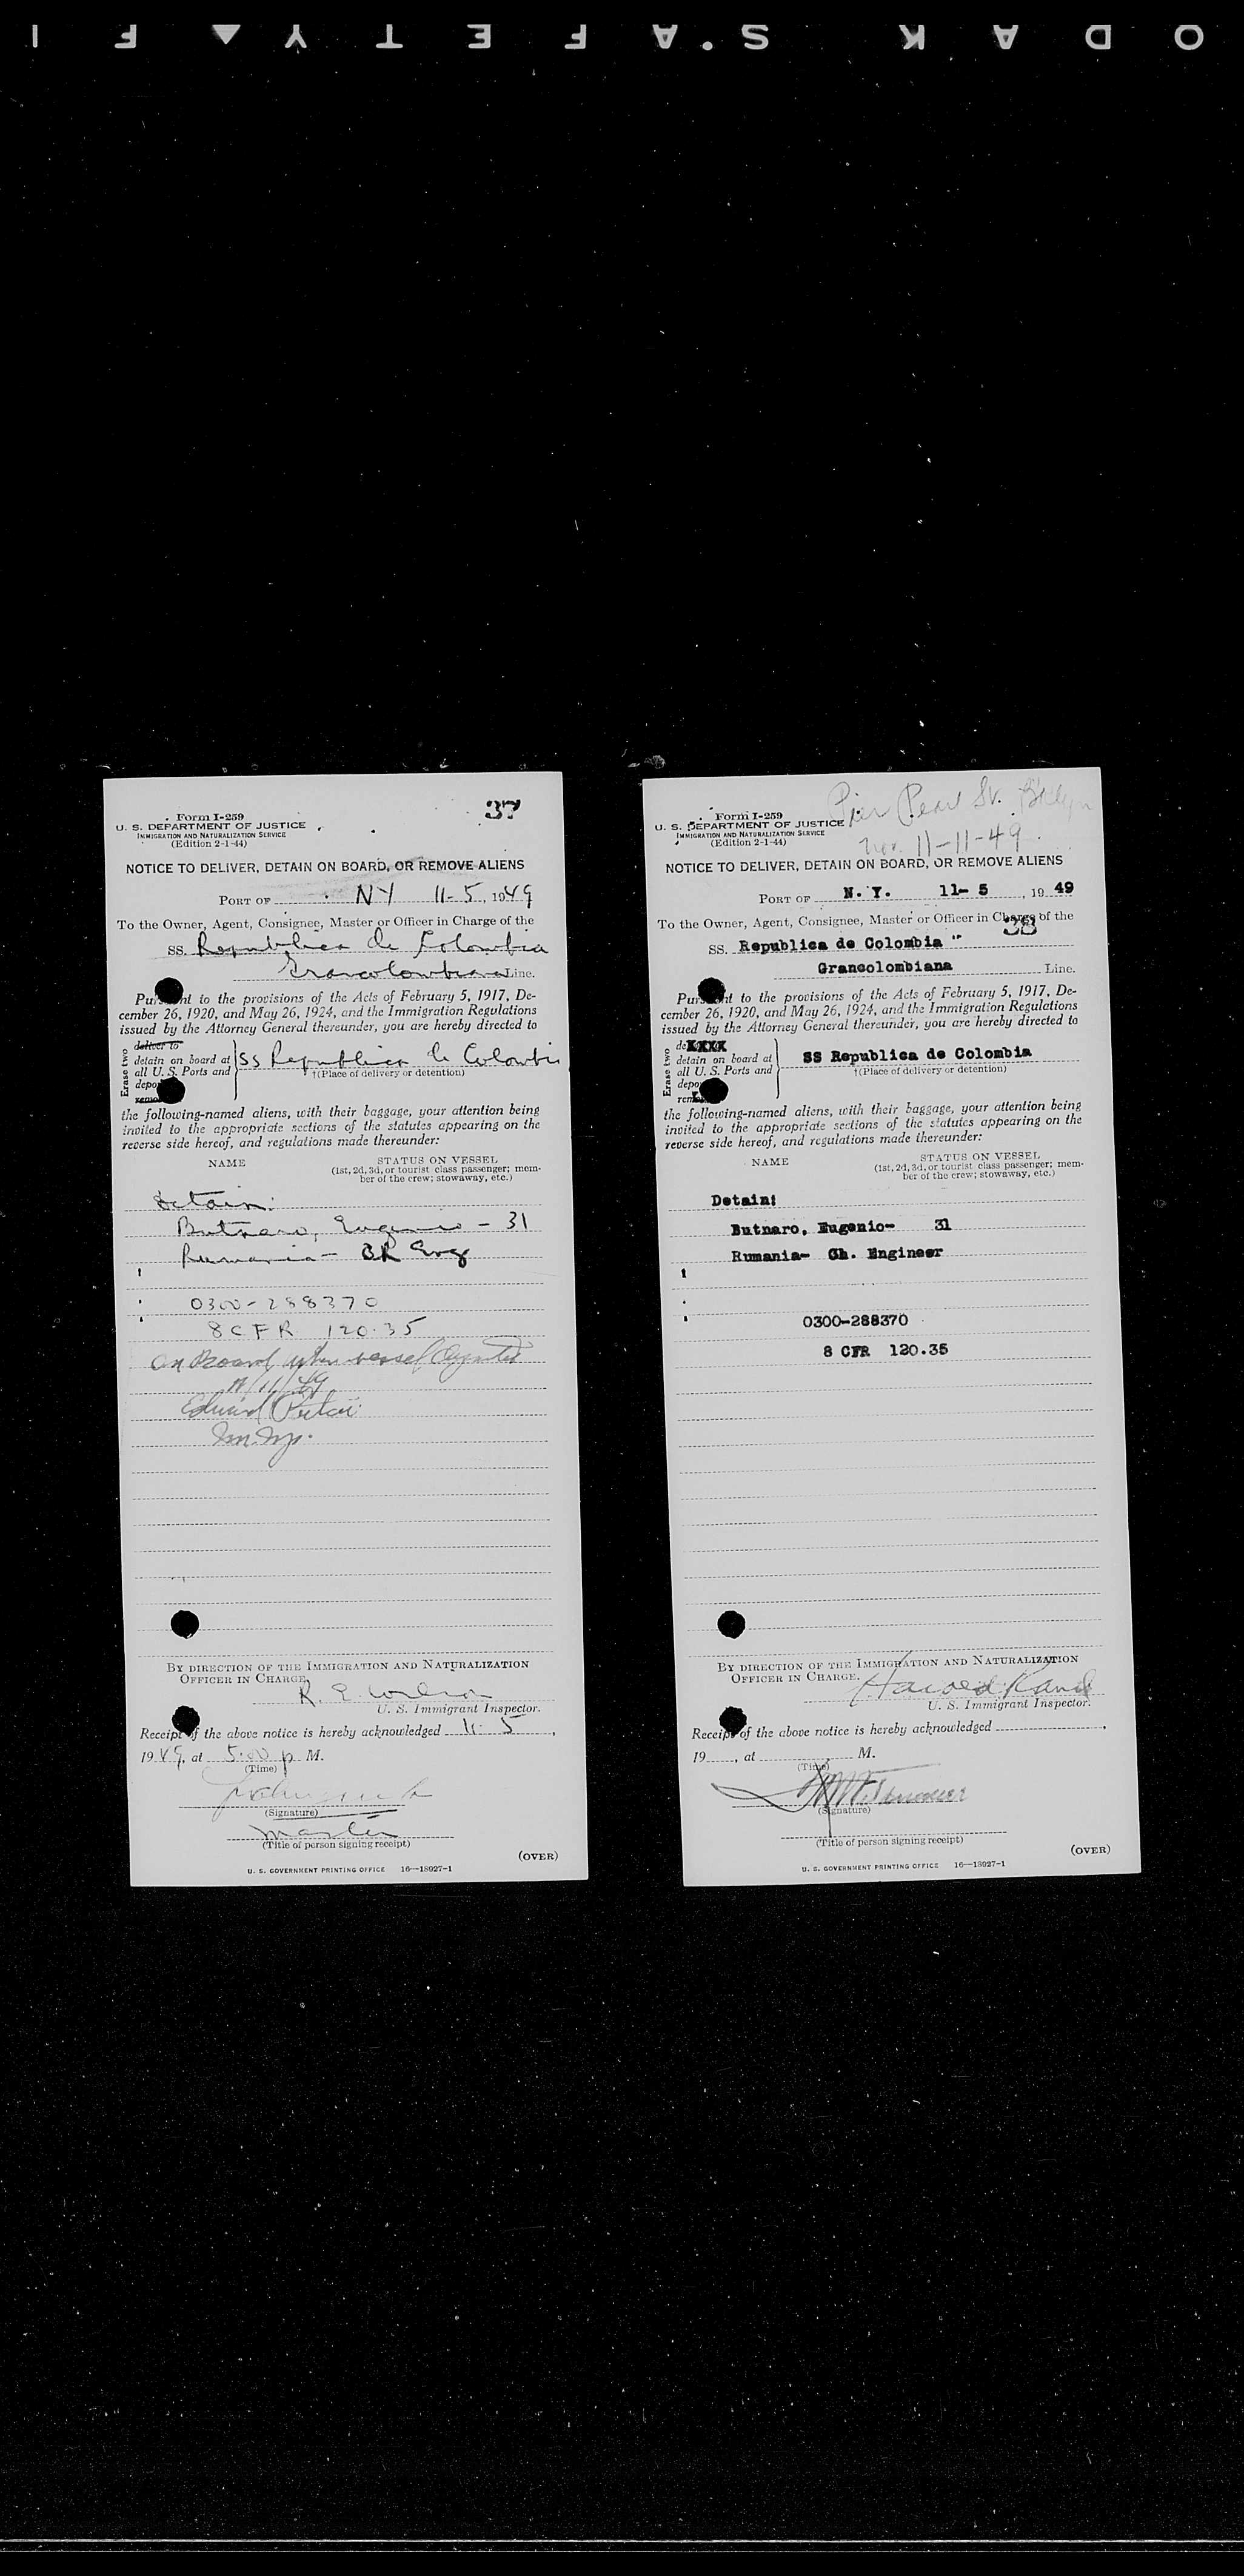 ODAK SAFETY FI
37
Form I-259
U. S. DEPARTMENT OF JUSTICE
IMMIGRATION AND NATURALIZATION SERVICE
(Edition 2-1-44)
NOTICE TO DELIVER, DETAIN ON BOARD, OR REMOVE ALIENS
PORT OF NY 11-5, 1949
To the Owner, Agent, Consignee, Master or Officer in Charge of the
SS. Republica de Colombia
Grancolombiana Line.
Pursuant to the provisions of the Acts of February 5, 1917, De-
cember 26, 1920, and May 26, 1924, and the Immigration Regulations
issued by the Attorney General thereunder, you are hereby directed to
Erase two
deliver to
detain on board at
all U. S. Ports and
depo
remo
SS Republica de Colombia
†(Place of delivery or detention)
the following-named aliens, with their baggage, your attention being
invited to the appropriate sections of the statutes appearing on the
reverse side hereof, and regulations made thereunder:
NAME
STATUS ON VESSEL
(1st, 2d, 3d, or tourist class passenger; mem-
ber of the crew; stowaway, etc.)
Detain:
Butnaro, Eugenio - 31
Rumania - Eng
0300-288370
8 CFR 120.35
On Board when vessel departed
11/11/49
Edward
Im. Insp.
BY DIRECTION OF THE IMMIGRATION AND NATURALIZATION
OFFICER IN CHARGE.
R. E. Wilson
U. S. Immigrant Inspector.
Receipt of the above notice is hereby acknowledged 11-5,
1949, at 5:00 p M.
(Time)
(Signature)
Master
(Title of person signing receipt)
(OVER)
U. S. GOVERNMENT PRINTING OFFICE 16—18927-1
Pier Pearl St. Bklyn
Nov. 11-11-49
Form I-259
U. S. DEPARTMENT OF JUSTICE
IMMIGRATION AND NATURALIZATION SERVICE
(Edition 2-1-44)
NOTICE TO DELIVER, DETAIN ON BOARD, OR REMOVE ALIENS
PORT OF N. Y. 11- 5, 19 49
To the Owner, Agent, Consignee, Master or Officer in Charge of the
38
SS. Republica de Colombia "
Grancolombiana Line.
Pursuant to the provisions of the Acts of February 5, 1917, De-
cember 26, 1920, and May 26, 1924, and the Immigration Regulations
issued by the Attorney General thereunder, you are hereby directed to
Erase two
deXXXX
detain on board at
all U. S. Ports and
depo
rem
SS Republica de Colombia
†(Place of delivery or detention)
the following-named aliens, with their baggage, your attention being
invited to the appropriate sections of the statutes appearing on the
reverse side hereof, and regulations made thereunder:
NAME
STATUS ON VESSEL
(1st, 2d, 3d, or tourist class passenger; mem-
ber of the crew; stowaway, etc.)
Detain:
Butnaro, Eugenio- 31
Rumania- Ch. Engineer
0300-288370
8 CFR 120.35
BY DIRECTION OF THE IMMIGRATION AND NATURALIZATION
OFFICER IN CHARGE.
Harold Rand
U. S. Immigrant Inspector.
Receipt of the above notice is hereby acknowledged ,
19 , at M.
(Time)
(Signature)
(Title of person signing receipt)
(OVER)
U. S. GOVERNMENT PRINTING OFFICE 16—18927-1